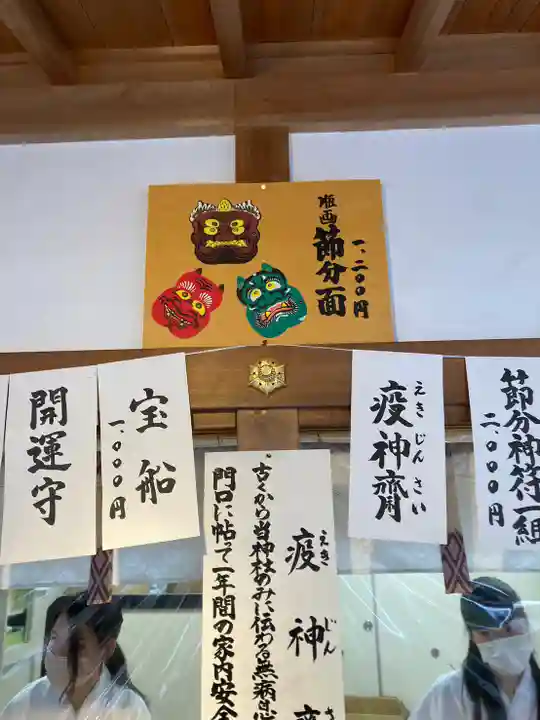 版画
節分面
一、二〇〇円
節分神符一組
二、〇〇〇円
えきじんさい
疫神齋
宝船
一、〇〇〇円
開運守
えきじん
疫神
古くから当神社のみに伝わる無病息
門口に帖って一年間の家内安全